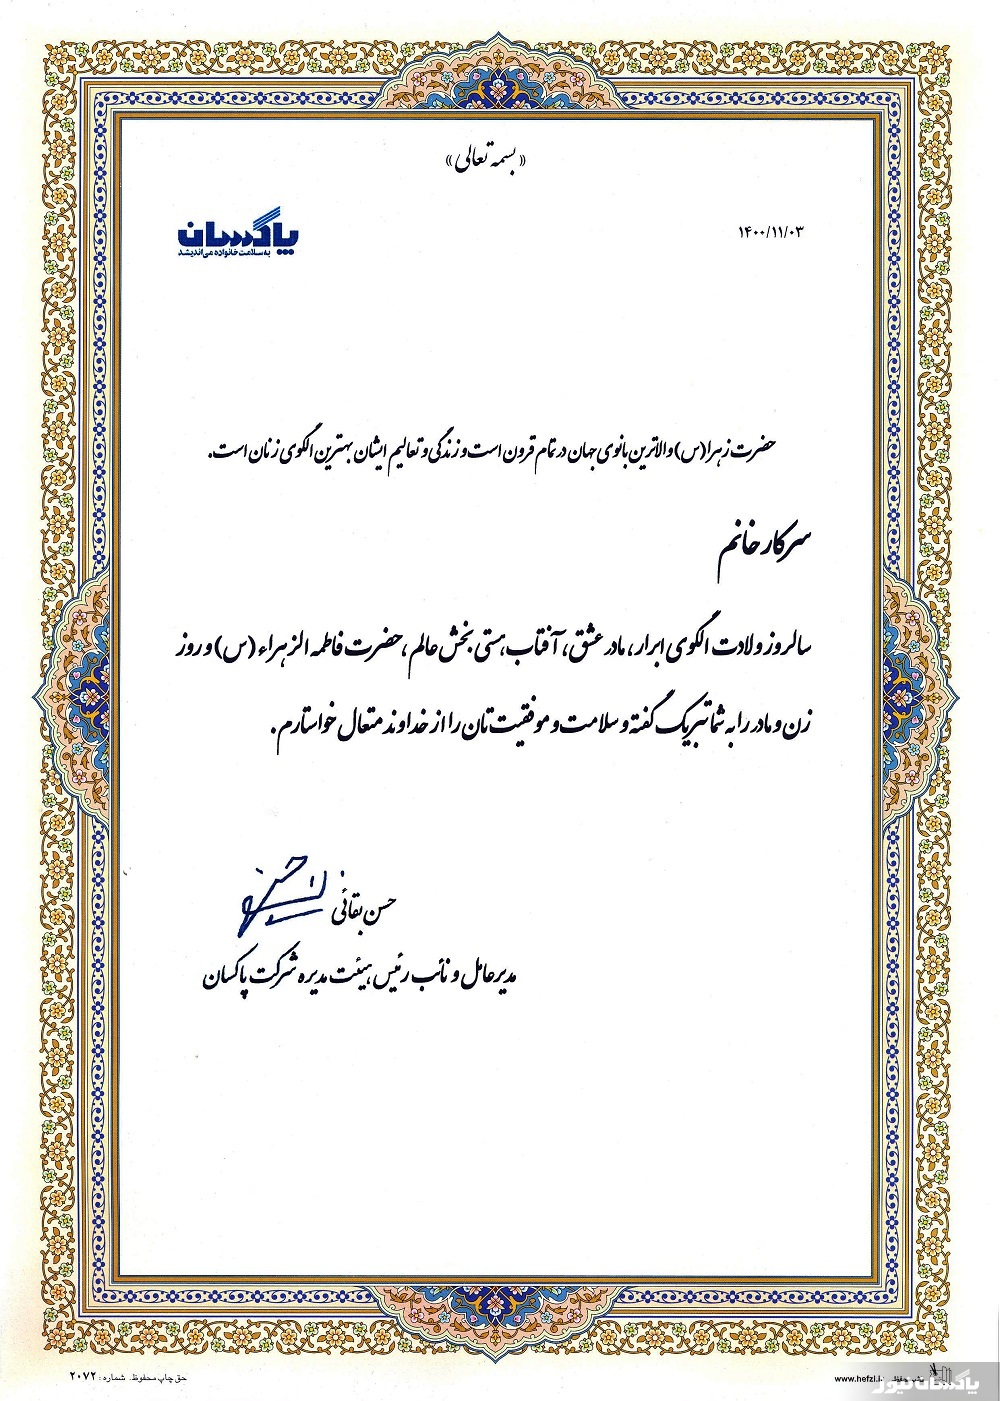 « بسمه تعالی »
۱۴۰۰/۱۱/۰۳
پاکسان
به سلامت خانواده می‌اندیشد
حضرت زهرا(س) والاترین بانوی جهان در تمام قرون است و زندگی و تعالیم ایشان بهترین الگوی زنان است.
سرکار خانم
سالروز ولادت الگوی ابرار، مادر عشق، آفتاب هستی بخش عالم، حضرت فاطمه الزهراء (س) و روز
زن و مادر را به شما تبریک گفته و سلامت و موفقیت تان را از خداوند متعال خواستارم.
حسن بقائی
مدیرعامل و نائب رئیس هیئت مدیره شرکت پاکسان
حق چاپ محفوظ. شماره: ۲۰۷۲
www.hefzi.i
پاکسان نیوز